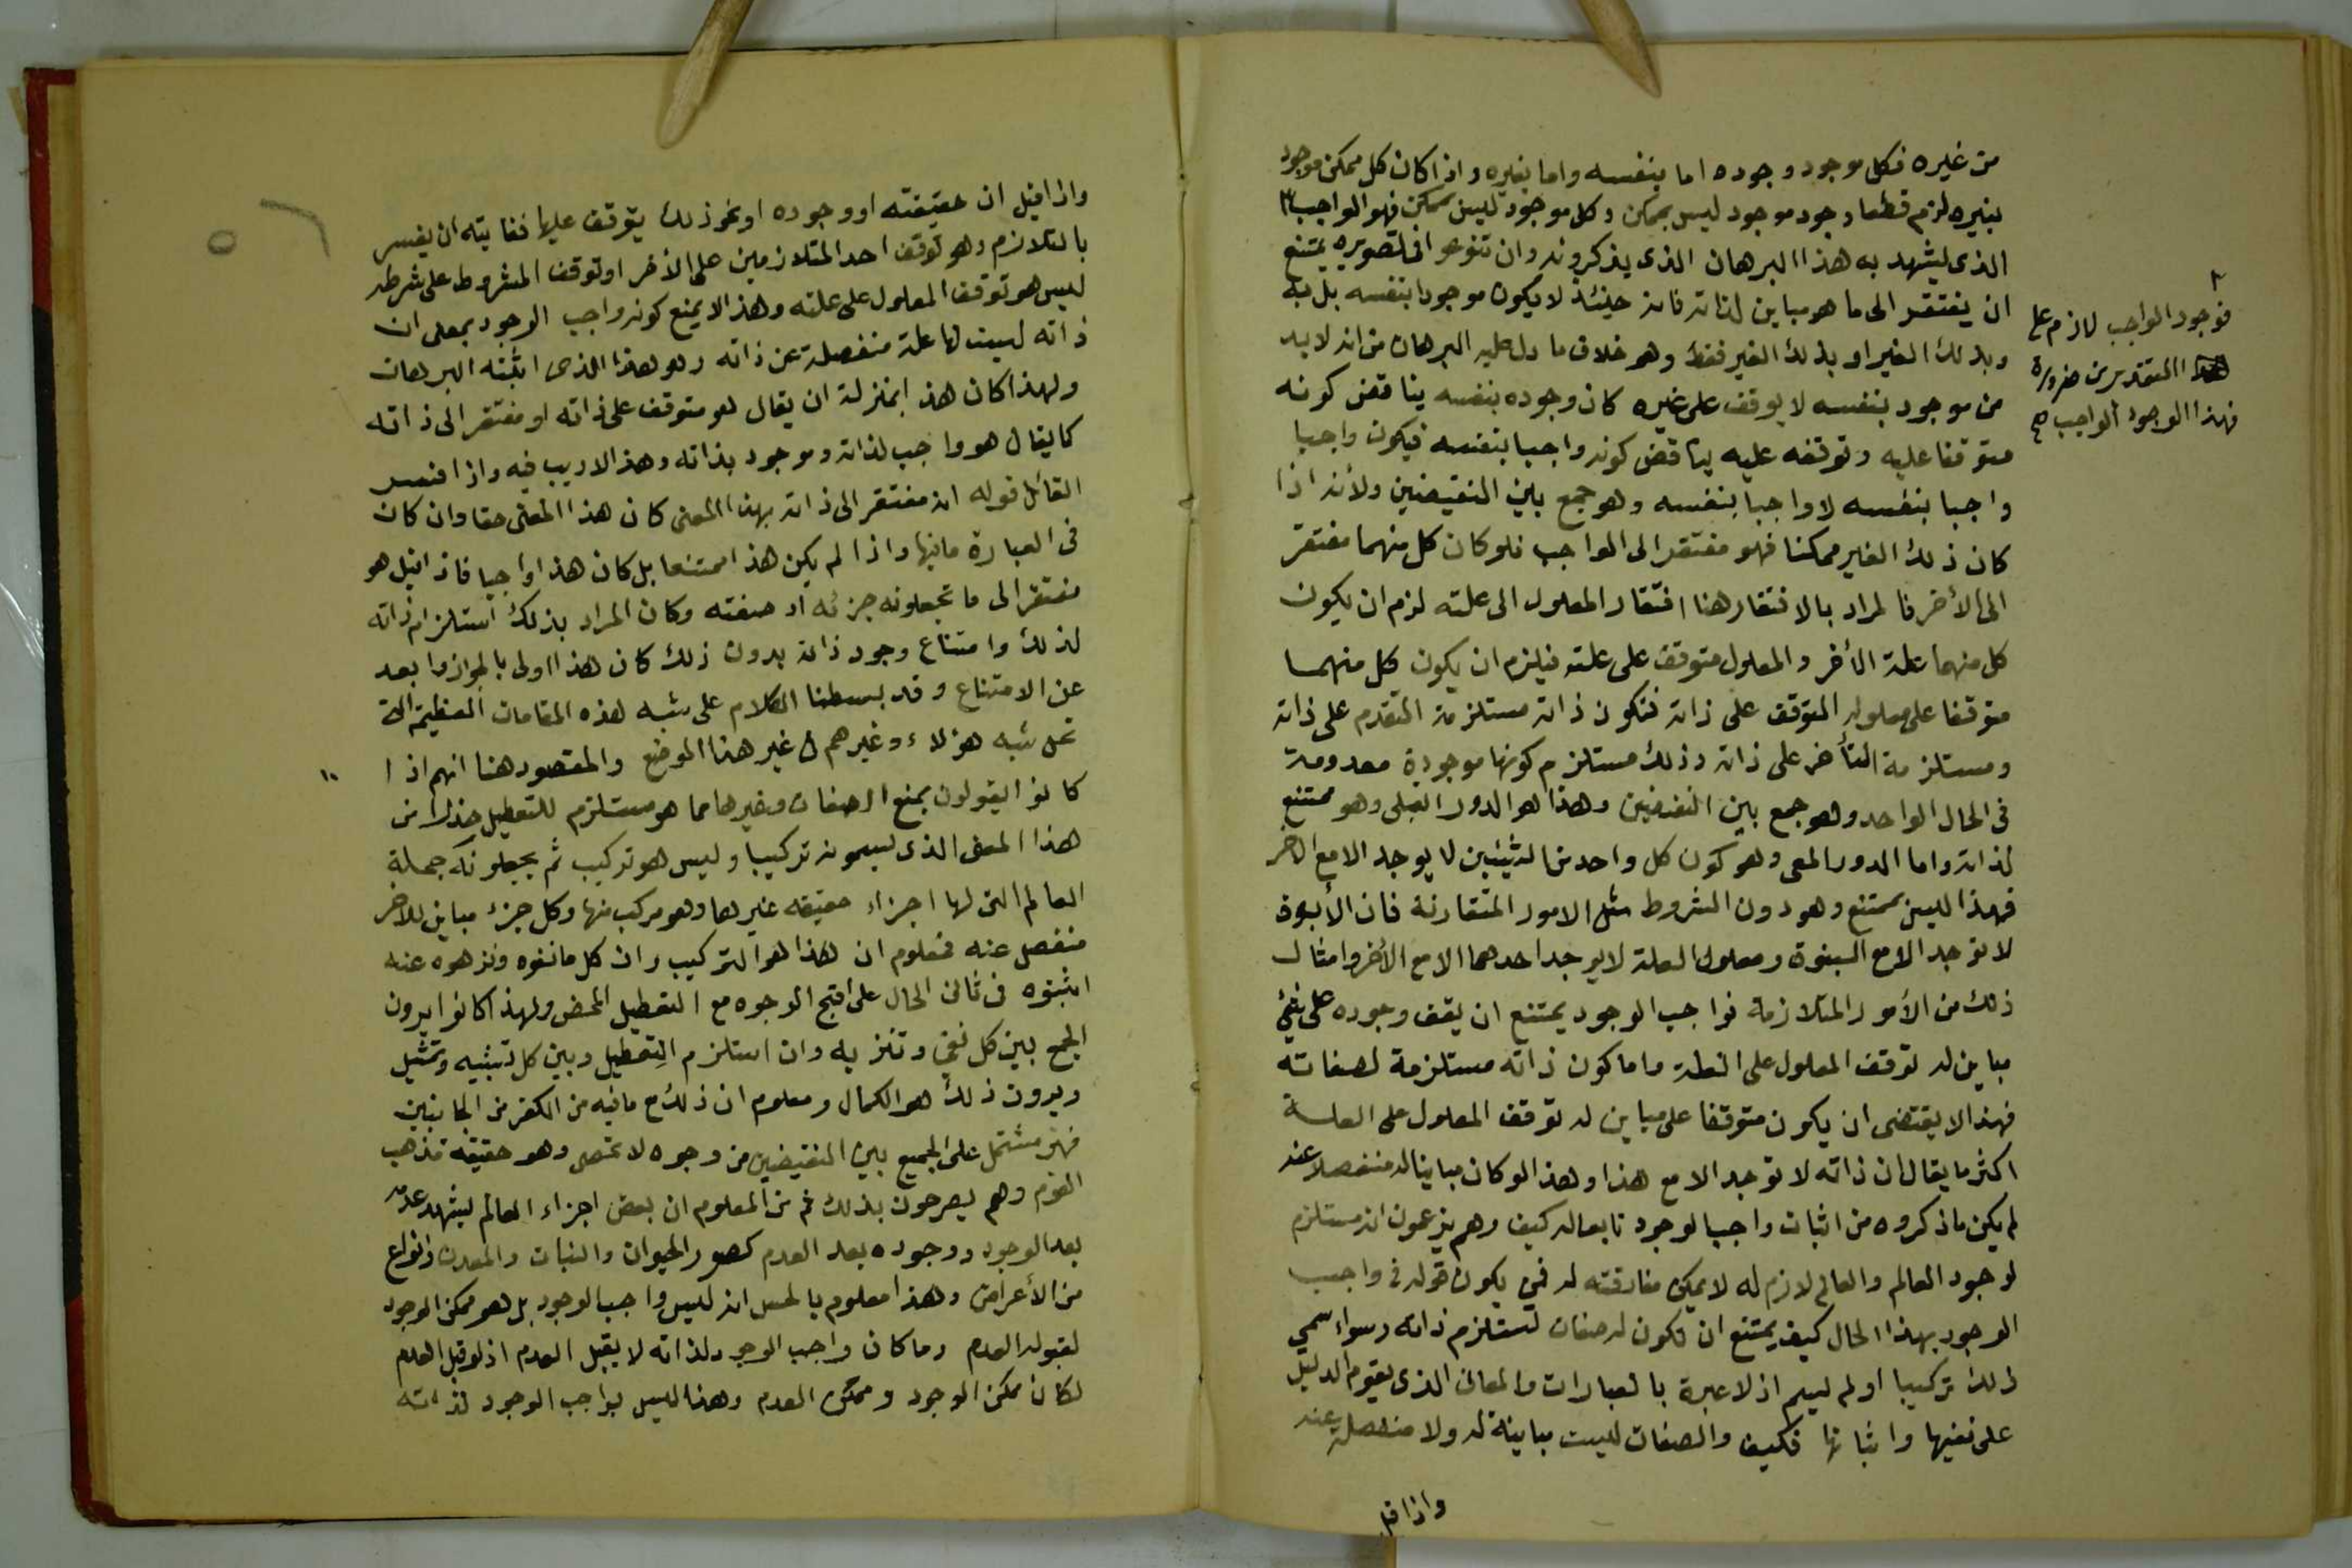 من غيره فكل موجود وجوده اما بنفسه واما بغيره واذا كان كل ممكن موجود
بغيره لزم قطعا وجود موجود ليس بممكن وكل موجود ليس بممكن فهو الواجب
الذى يشهد به هذا البرهان الذى يذكرونه وان تنوعوا فى تصويره يمتنع
ان يفتقر الى ما هو مباين لذاته فانه حينئذ لا يكون موجودا بنفسه بل به
وبذلك الغير او بذلك الغير فقط وهو خلاف ما دل عليه البرهان من انه لابد
من موجود بنفسه لا يوقف على غيره كان وجوده بنفسه يناقض كونه
متوقفا عليه وتوقفه عليه يناقض كونه واجبا بنفسه فيكون واجبا
واجبا بنفسه لا واجبا بنفسه وهو جمع بين النقيضين ولأنه اذا
كان ذلك الغير ممكنا فهو مفتقر الى الواجب فلو كان كل منهما مفتقر
الى الأخر فالمراد بالافتقار هنا افتقار المعلول الى علته لزم ان يكون
كل منهما علة الأخر والمعلول متوقف على علته فيلزم ان يكون كل منهما
متوقفا على معلوله المتوقف على ذاته فتكون ذاته مستلزمة التقدم على ذاته
ومستلزمة التأخر على ذاته وذلك مستلزم كونها موجودة معدومة
فى الحال الواحد وهو جمع بين النقيضين وهذا هو الدور القبلى وهو ممتنع
لذاته واما الدور المعى وهو كون كل واحد من الشيئين لا يوجد الا مع الاخر
فهذا ليس بممتنع وهو دون الشروط مثل الامور المتقارنة فان الأبوة
لا توجد الا مع البنوة ومعلول العلة لا يوجد احدهما الا مع الأخر وامثال
ذلك من الأمور المتلازمة فواجب الوجود يمتنع ان يقف وجوده على شئ
مباين له توقف المعلول على العلة واما كون ذاته مستلزمة لصفاته
فهذا لا يقتضى ان يكون متوقفا على مباين له توقف المعلول على العلة
اكثر ما يقال ان ذاته لا توجد الا مع هذا وهذا لو كان مباينا له منفصلا عنه
لم يكن ما ذكروه من اثبات واجب الوجود تابعا له كيف وهم يزعمون انه مستلزم
لوجود العالم والعالم لازم له لا يمكن مفارقته له فمن يكون قوله فى واجب
الوجود بهذا الحال كيف يمتنع ان تكون له صفات تستلزم ذاته وسواء سمي
ذلك تركيبا او لم يسم اذ لا عبرة بالعبارات والمعانى الذى يقوم الدليل
على نفيها واثباتها فكيف والصفات ليست مباينة له ولا منفصلة عنه
واذا قيل
فوجود الواجب لازم على
التقديرين ضرورة
فهذا الوجود الواجب صح
واذا قيل ان حقيقته او وجوده او نحو ذلك يتوقف عليها فغايته ان يفسر
بالتلازم وهو توقف احد المتلازمين على الأخر او توقف المشروط على شرطه
ليس هو توقف المعلول على علته وهذا لا يمنع كونه واجب الوجود بمعنى ان
ذاته ليست لها علة منفصلة عن ذاته وهو هذا الذى اثبته البرهان
ولهذا كان هذا بمنزلة ان يقال هو متوقف على ذاته او مفتقر الى ذاته
كما يقال هو واجب لذاته وموجود بذاته وهذا لا ريب فيه واذا فسر
القائل قوله انه مفتقر الى ذاته بهذا المعنى كان هذا المعنى حقا وان كان
فى العبارة ما فيها واذا لم يكن هذا ممتنعا بل كان هذا واجبا فاذا قيل هو
مفتقر الى ما تجعلونه جزئه او صفته وكان المراد بذلك استلزام ذاته
لذلك وامتناع وجود ذاته بدون ذلك كان هذا اولى بالجواز وابعد
عن الامتناع وقد بسطنا الكلام على شبه هذه المقامات العظيمة التى
تحل شبه هؤلاء وغيرهم فى غير هذا الموضع والمقصود هنا انهم اذا
كانوا يقولون بمنع الصفات وغيرها مما هو مستلزم للتعطيل حذرا من
هذا المعنى الذى يسمونه تركيبا وليس هو تركيب ثم يجعلونه جملة
العالم التى لها اجزاء حقيقه غيرها وهو مركب منها وكل جزء مباين للاخر
منفصل عنه فمعلوم ان هذا هو التركيب وان كل ما نفوه ونزهوه عنه
اثبتوه فى ثانى الحال على اقبح الوجوه مع التعطيل المحض ولهذا كانوا يرون
الجمع بين كل نفي وتنزيه وان استلزم التعطيل وبين كل تشبيه وتمثيل
ويرون ذلك هو الكمال ومعلوم ان ذلك مع ما فيه من الكفر من الجانبين
فهو مشتمل على الجميع بين النقيضين من وجوه لا تحصى وهو حقيقة مذهب
القوم وهم يصرحون بذلك ثم من المعلوم ان بعض اجزاء العالم يشهد عدمه
بعد الوجود ووجوده بعد العدم كصور الحيوان والنبات والمعدن وانواع
من الأعراض وهذا معلوم بالحس انه ليس واجب الوجود بل هو ممكن الوجود
لقبوله العدم وما كان واجب الوجود لذاته لا يقبل العدم اذ لو قبل العدم
لكان ممكن الوجود وممكن العدم وهذا ليس بواجب الوجود لذاته